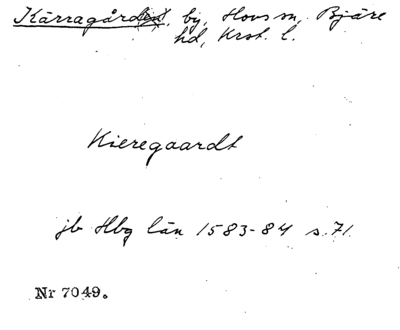 Kärragården, by, Hovs sn, Bjäre
hd, Krst. l.
Kieregaardt
jb Hbg län 1583-84 s. 71.
Nr 7049.